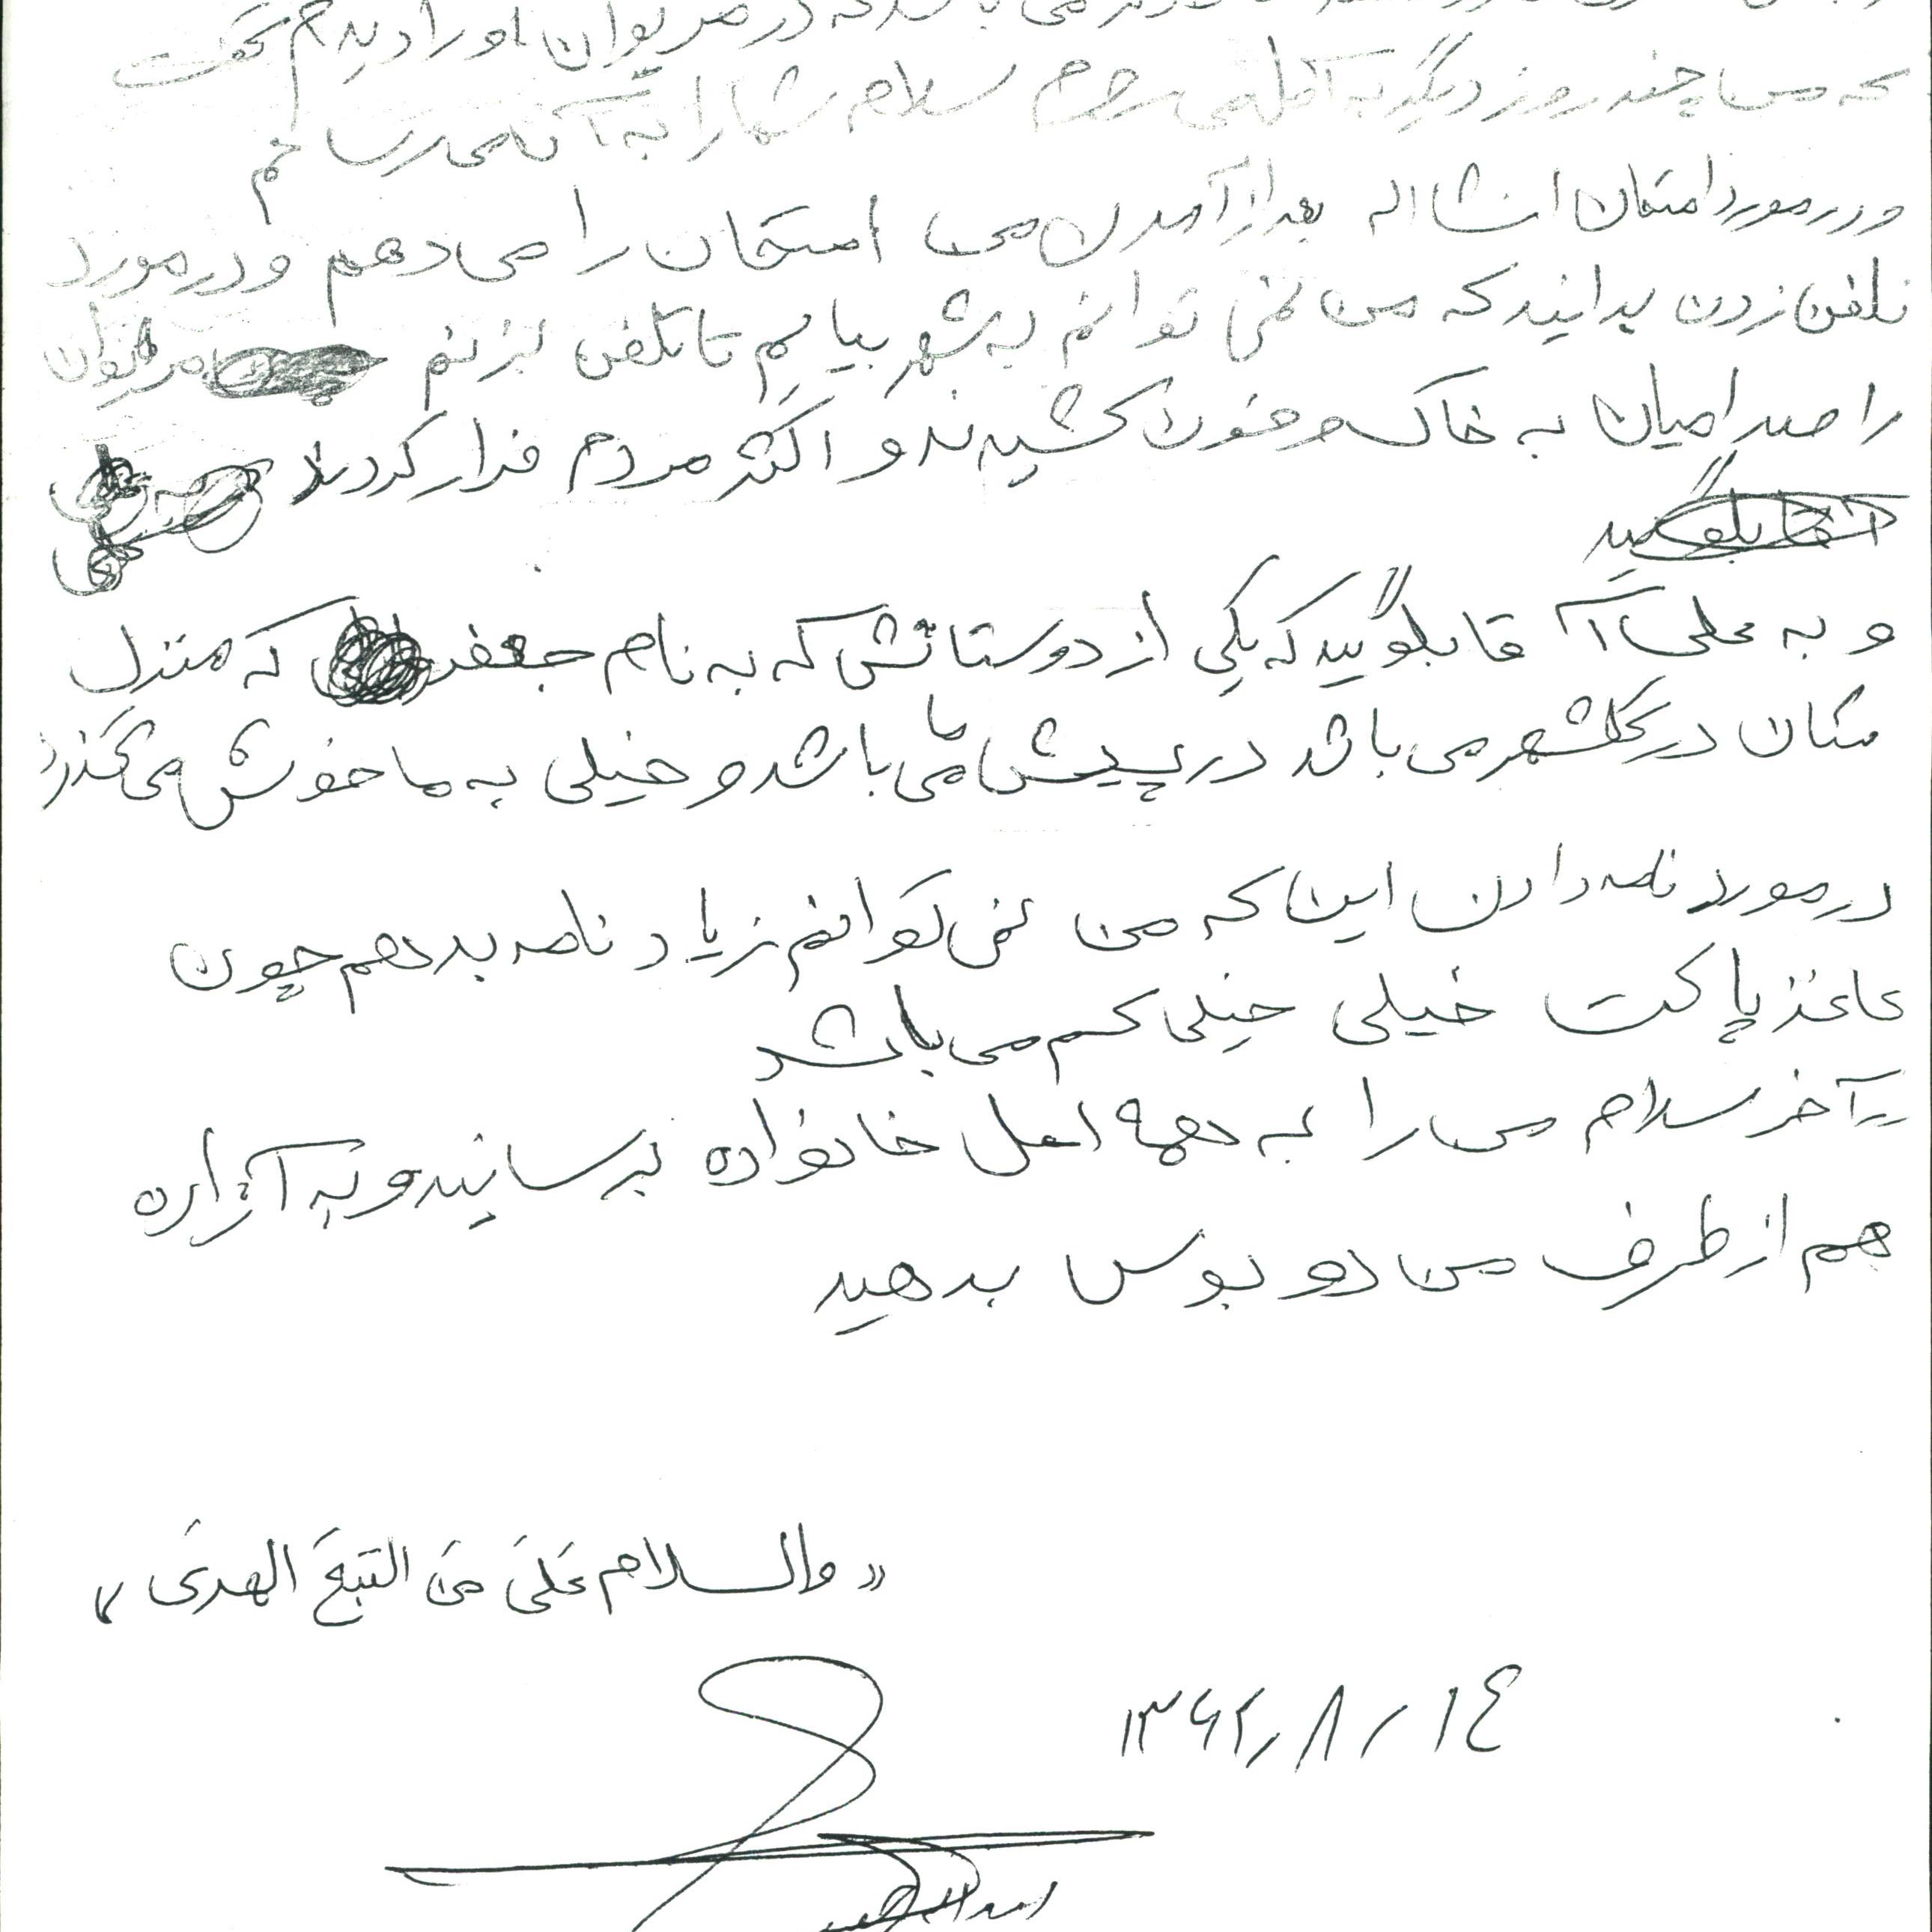 می باشد که در مریوان او را دیدم گفت
که من چند روز دیگر به می روم سلام شما را به آنها می رسانم
و در مورد امتحان انشااله بعد از آمدن من امتحان را می دهم و در مورد
تلفن زدن بدانید که من نمی توانم به شهر بیایم تا تلفن بزنم مریوان
را صدامیان به خاک و خون کشیدند و اکثر مردم فرار کردند
و به علی آقا بگویید که یکی از دوستانش که به نام جعفر که منزل
شان در گلشهر می باشد در پیش ما می باشد و خیلی به ما خوش می گذرد
در مورد نامه دادن این که من نمی توانم زیاد نامه بدهم چون
کاغذ پاکت خیلی خیلی کم می باشد
در آخر سلام من را به همه اهل خانواده برسانید و به آزاده
هم از طرف من دو بوس بدهید
«والسلام عَلَی مَن التبعَ الهدی»
۱۳۶۲/۸/۱۴